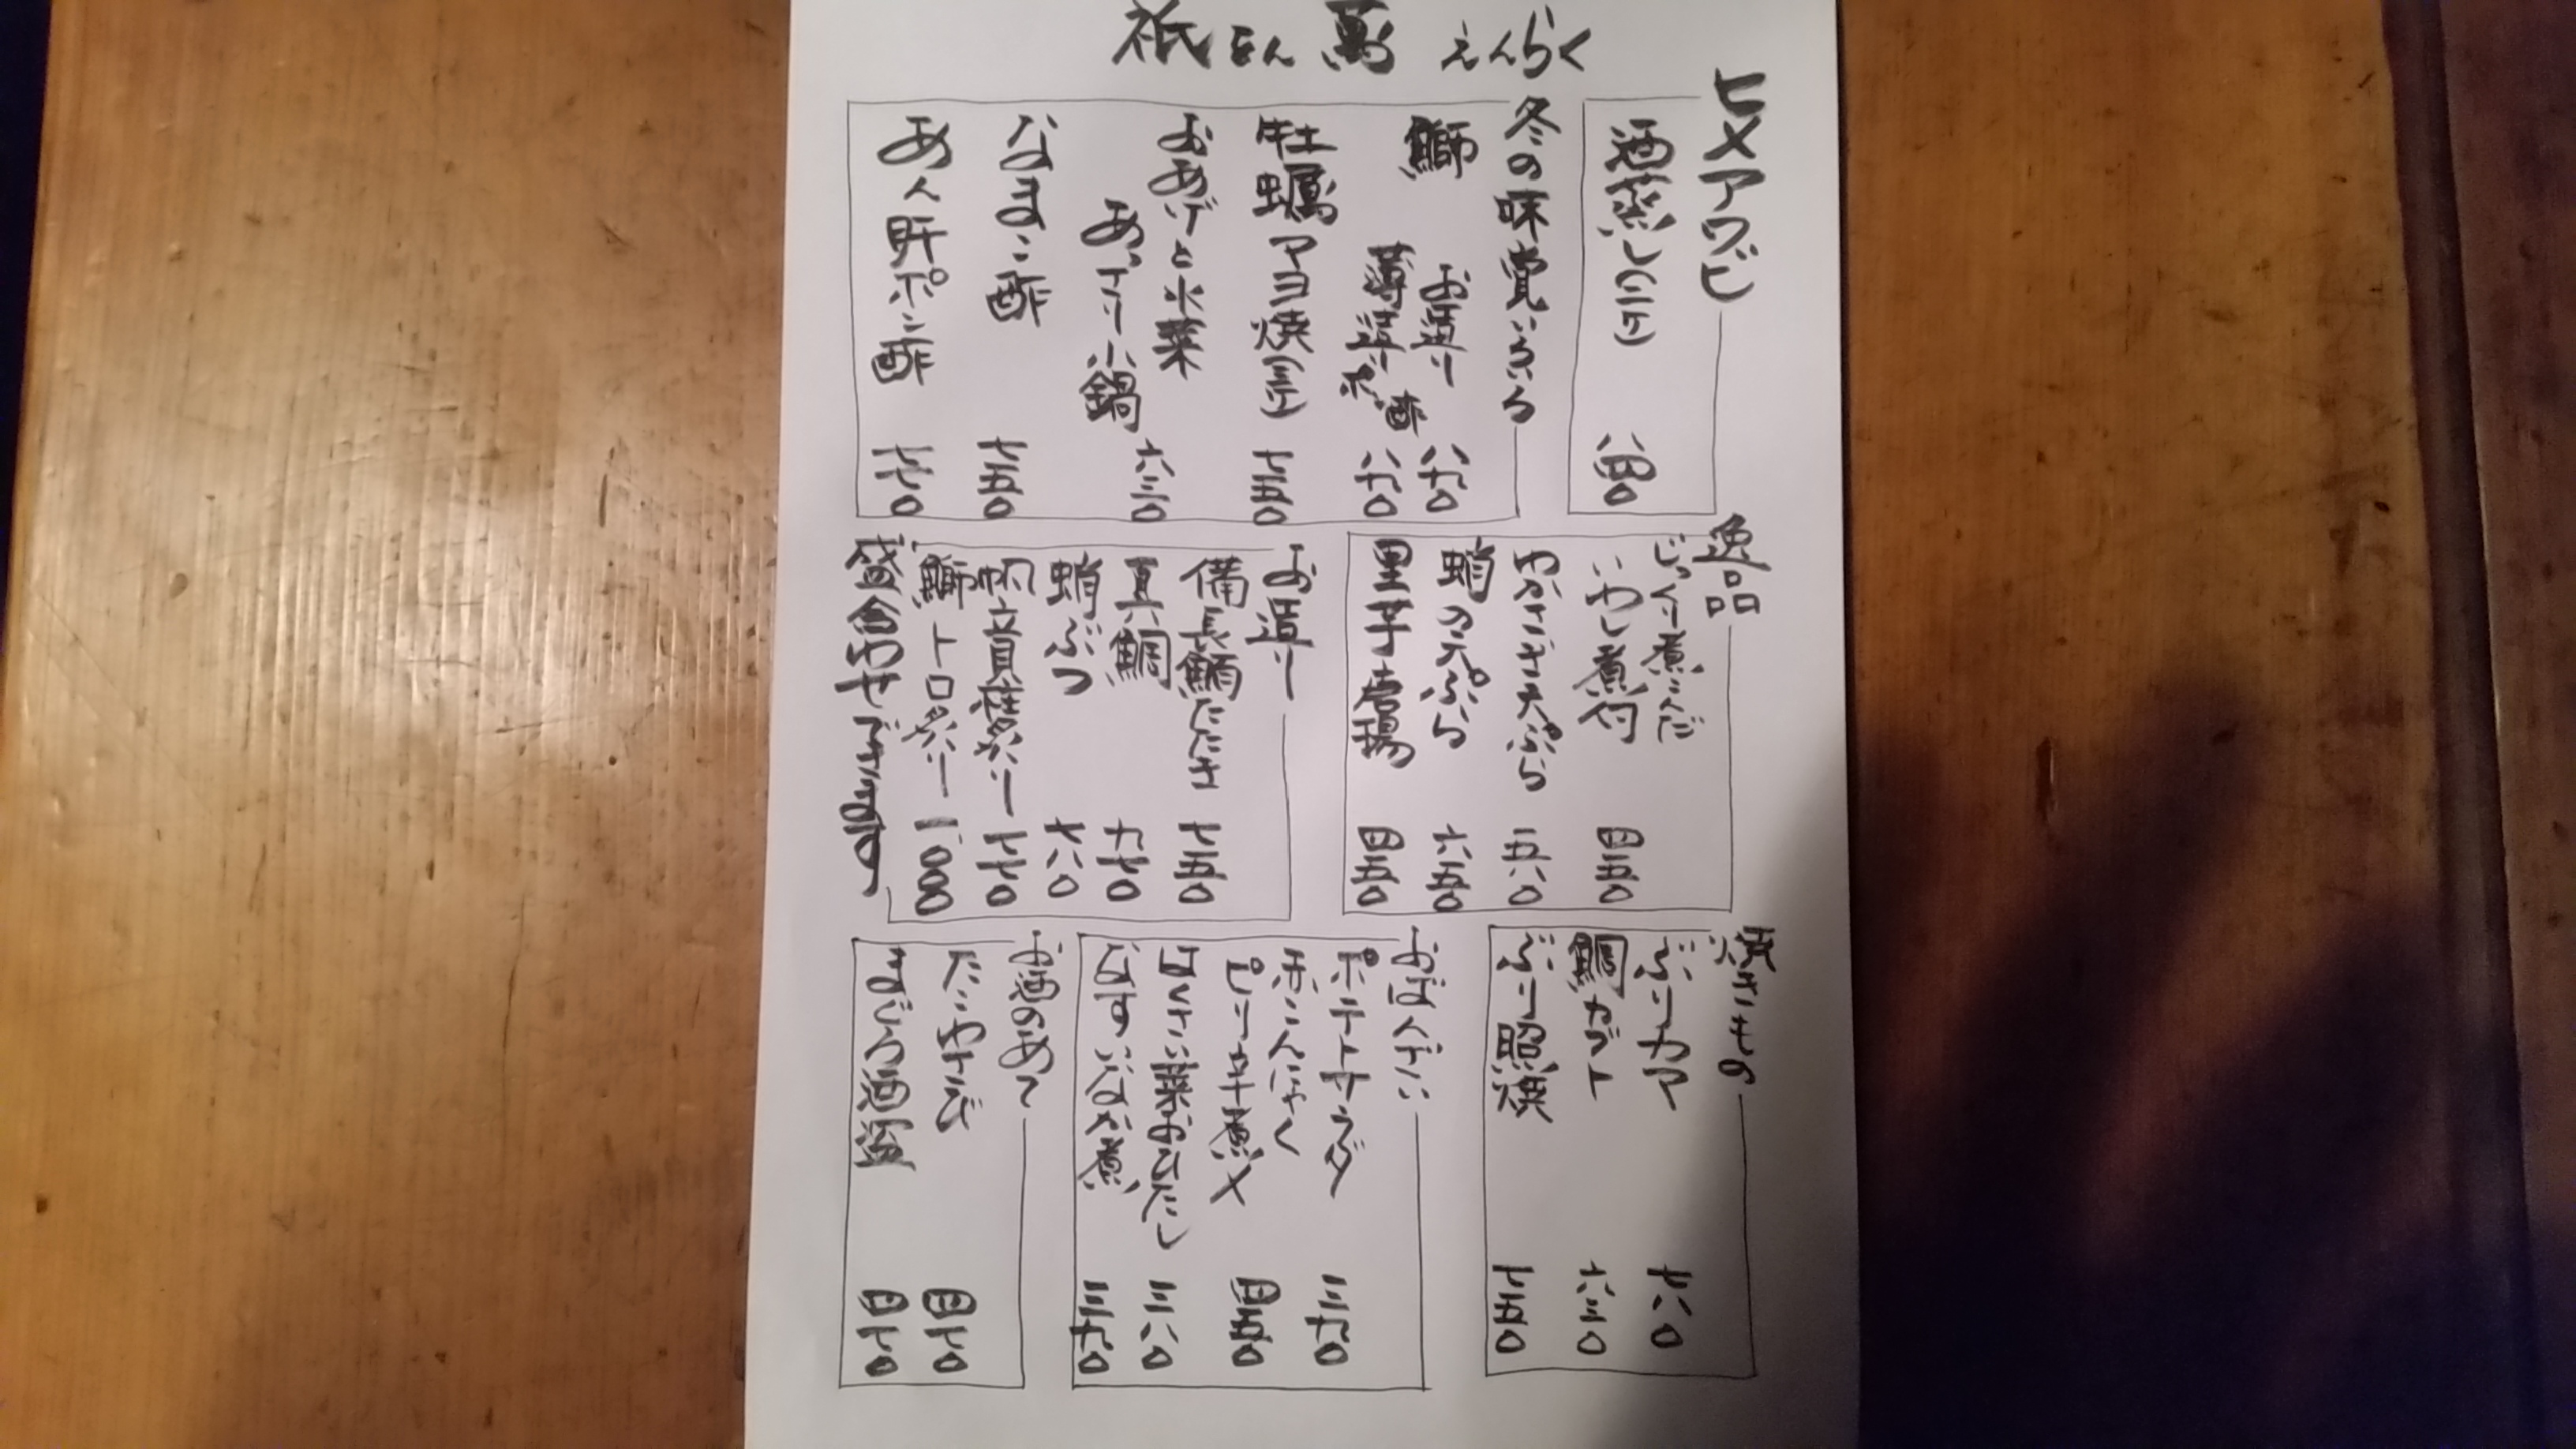 祇をん 萬 えんらく
ヒメアワビ
酒蒸し(二ケ) 八四〇
冬の味覚いろいろ
鰤 お造り 八九〇
薄造りポン酢 八九〇
牡蠣マヨ焼(三ケ) 七五〇
おあげと水菜
あっさり小鍋 六三〇
なまこ酢 七五〇
あん肝ポン酢 七七〇
逸品
じっくり煮こんだ
いわし煮付 四五〇
わかさぎ天ぷら 五八〇
蛸の天ぷら 六五〇
里芋唐揚 四五〇
お造り
備長鮪たたき 七五〇
真鯛 九七〇
蛸ぶつ 七八〇
帆立貝焼炙り 七七〇
鰤トロ炙り 一、〇〇〇
盛合わせできます
焼きもの
ぶりカマ 七八〇
鯛カブト 六三〇
ぶり照焼 七五〇
おばんざい
ポテトサラダ 三九〇
赤こんにゃく
ピリ辛煮〆 四五〇
はくさい菜おひたし 三八〇
なすいなか煮 三七〇
お酒のあて
たこわさび 四七〇
まびつ酒盗 四七〇